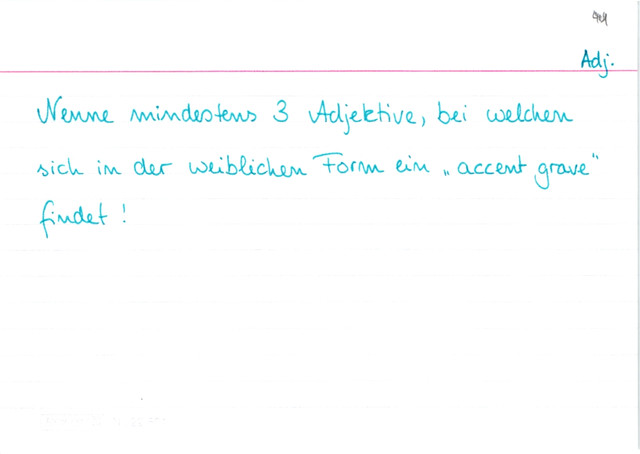 Adj.
Nenne mindestens 3 Adjektive, bei welchen
sich in der weiblichen Form ein „accent grave"
findet!